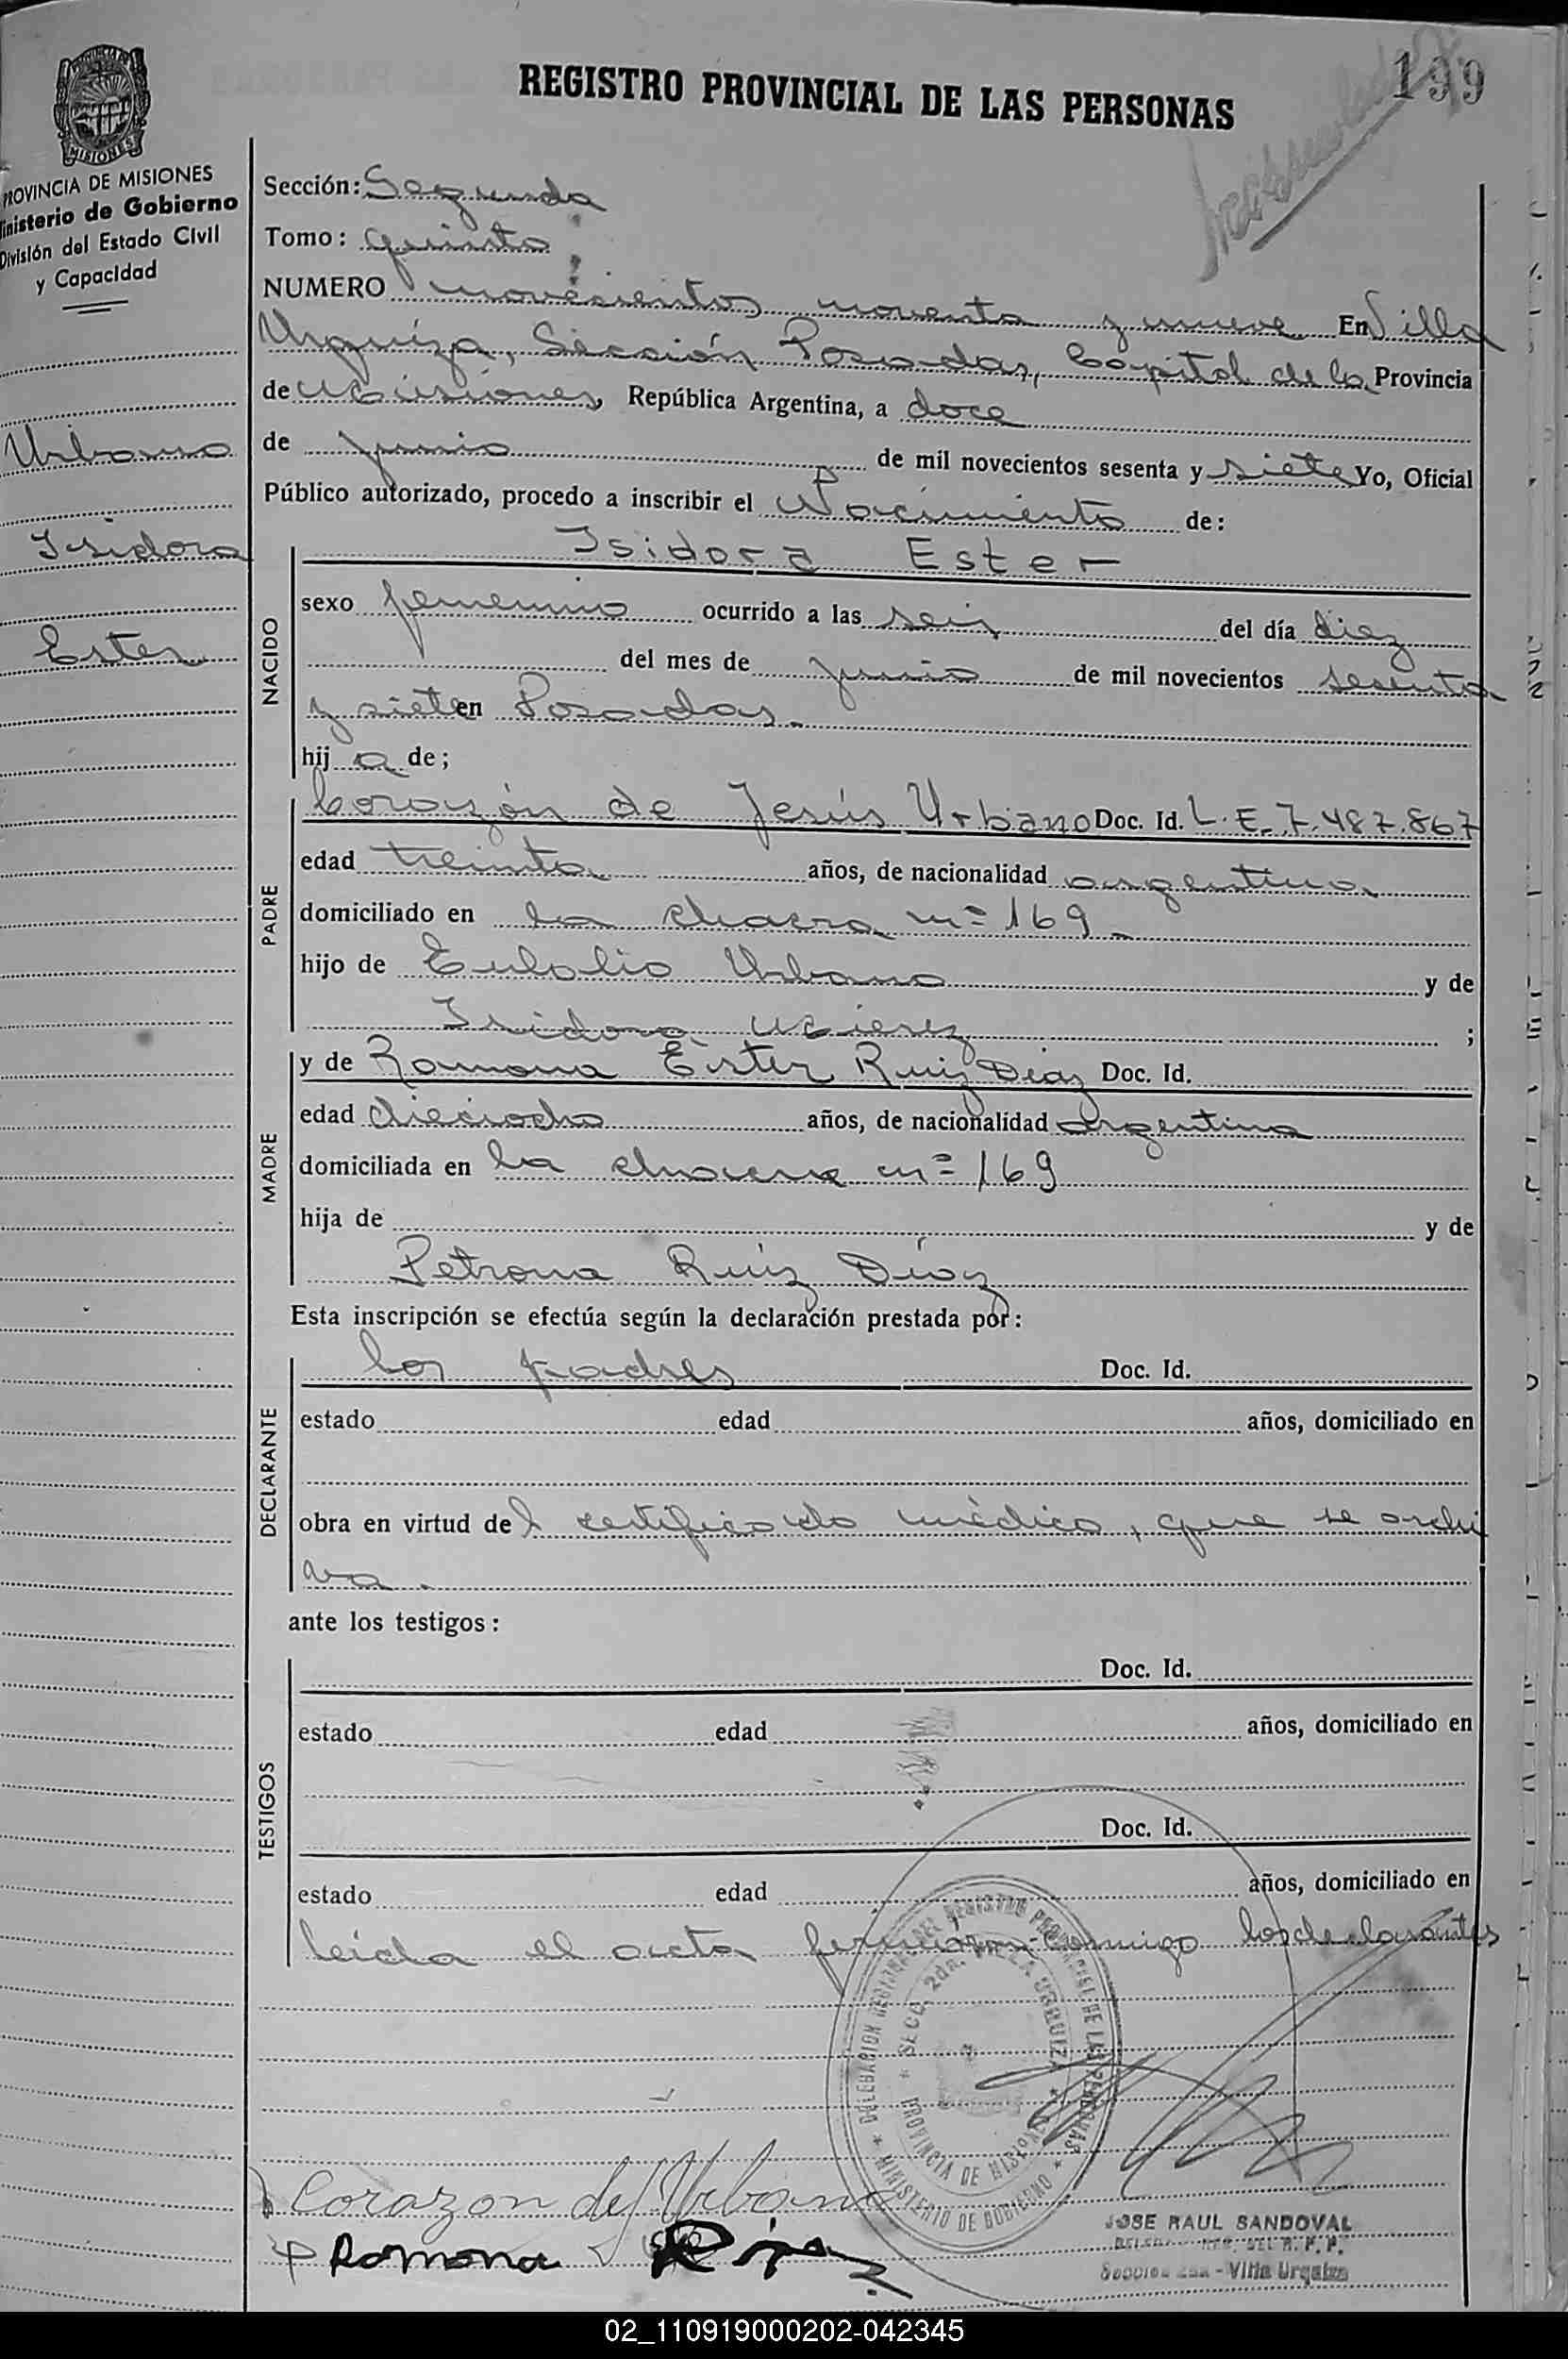 199
REGISTRO PROVINCIAL DE LAS PERSONAS
MISIONES
PROVINCIA DE MISIONES
Ministerio de Gobierno
División del Estado Civil
y Capacidad
Urbano
Isidora
Ester
Sección: Segunda
Tomo: quinto
NUMERO novecientos noventa y nueve En Villa
Urquiza, Sección Posadas, Capital de la Provincia
de Misiones, República Argentina, a doce
de junio de mil novecientos sesenta y siete Yo, Oficial
Público autorizado, procedo a inscribir el Nacimiento de:
NACIDO
Isidora Ester
sexo femenino ocurrido a las seis del día diez
del mes de junio de mil novecientos sesenta
y siete en Posadas.
hij a de;
PADRE
Corazón de Jesús Urbano Doc. Id. L.E. 7.487.867
edad treinta años, de nacionalidad argentina
domiciliado en la chacra nº 169
hijo de Eulalio Urbano y de
Isidora ;
MADRE
y de Ramona Ester Ruiz Diaz Doc. Id.
edad dieciocho años, de nacionalidad argentina
domiciliada en la chacra nº 169
hija de y de
Petrona Ruiz Díaz
Esta inscripción se efectúa según la declaración prestada por:
DECLARANTE
los padres Doc. Id.
estado edad años, domiciliado en
obra en virtud del certificado médico, que se archi
va.
ante los testigos:
TESTIGOS
Doc. Id.
estado edad años, domiciliado en
Doc. Id.
estado edad años, domiciliado en
Leída el acta firman conmigo los declarantes
DELEGACION REGISTRO PROVINCIAL DE LAS PERSONAS
SECC. 2da. VILLA URQUIZA
PROVINCIA DE MISIONES
MINISTERIO DE GOBIERNO
Corazon de J Urbano
Ramona
JOSE RAUL SANDOVAL
Sección 2da - Villa Urquiza
02_110919000202-042345